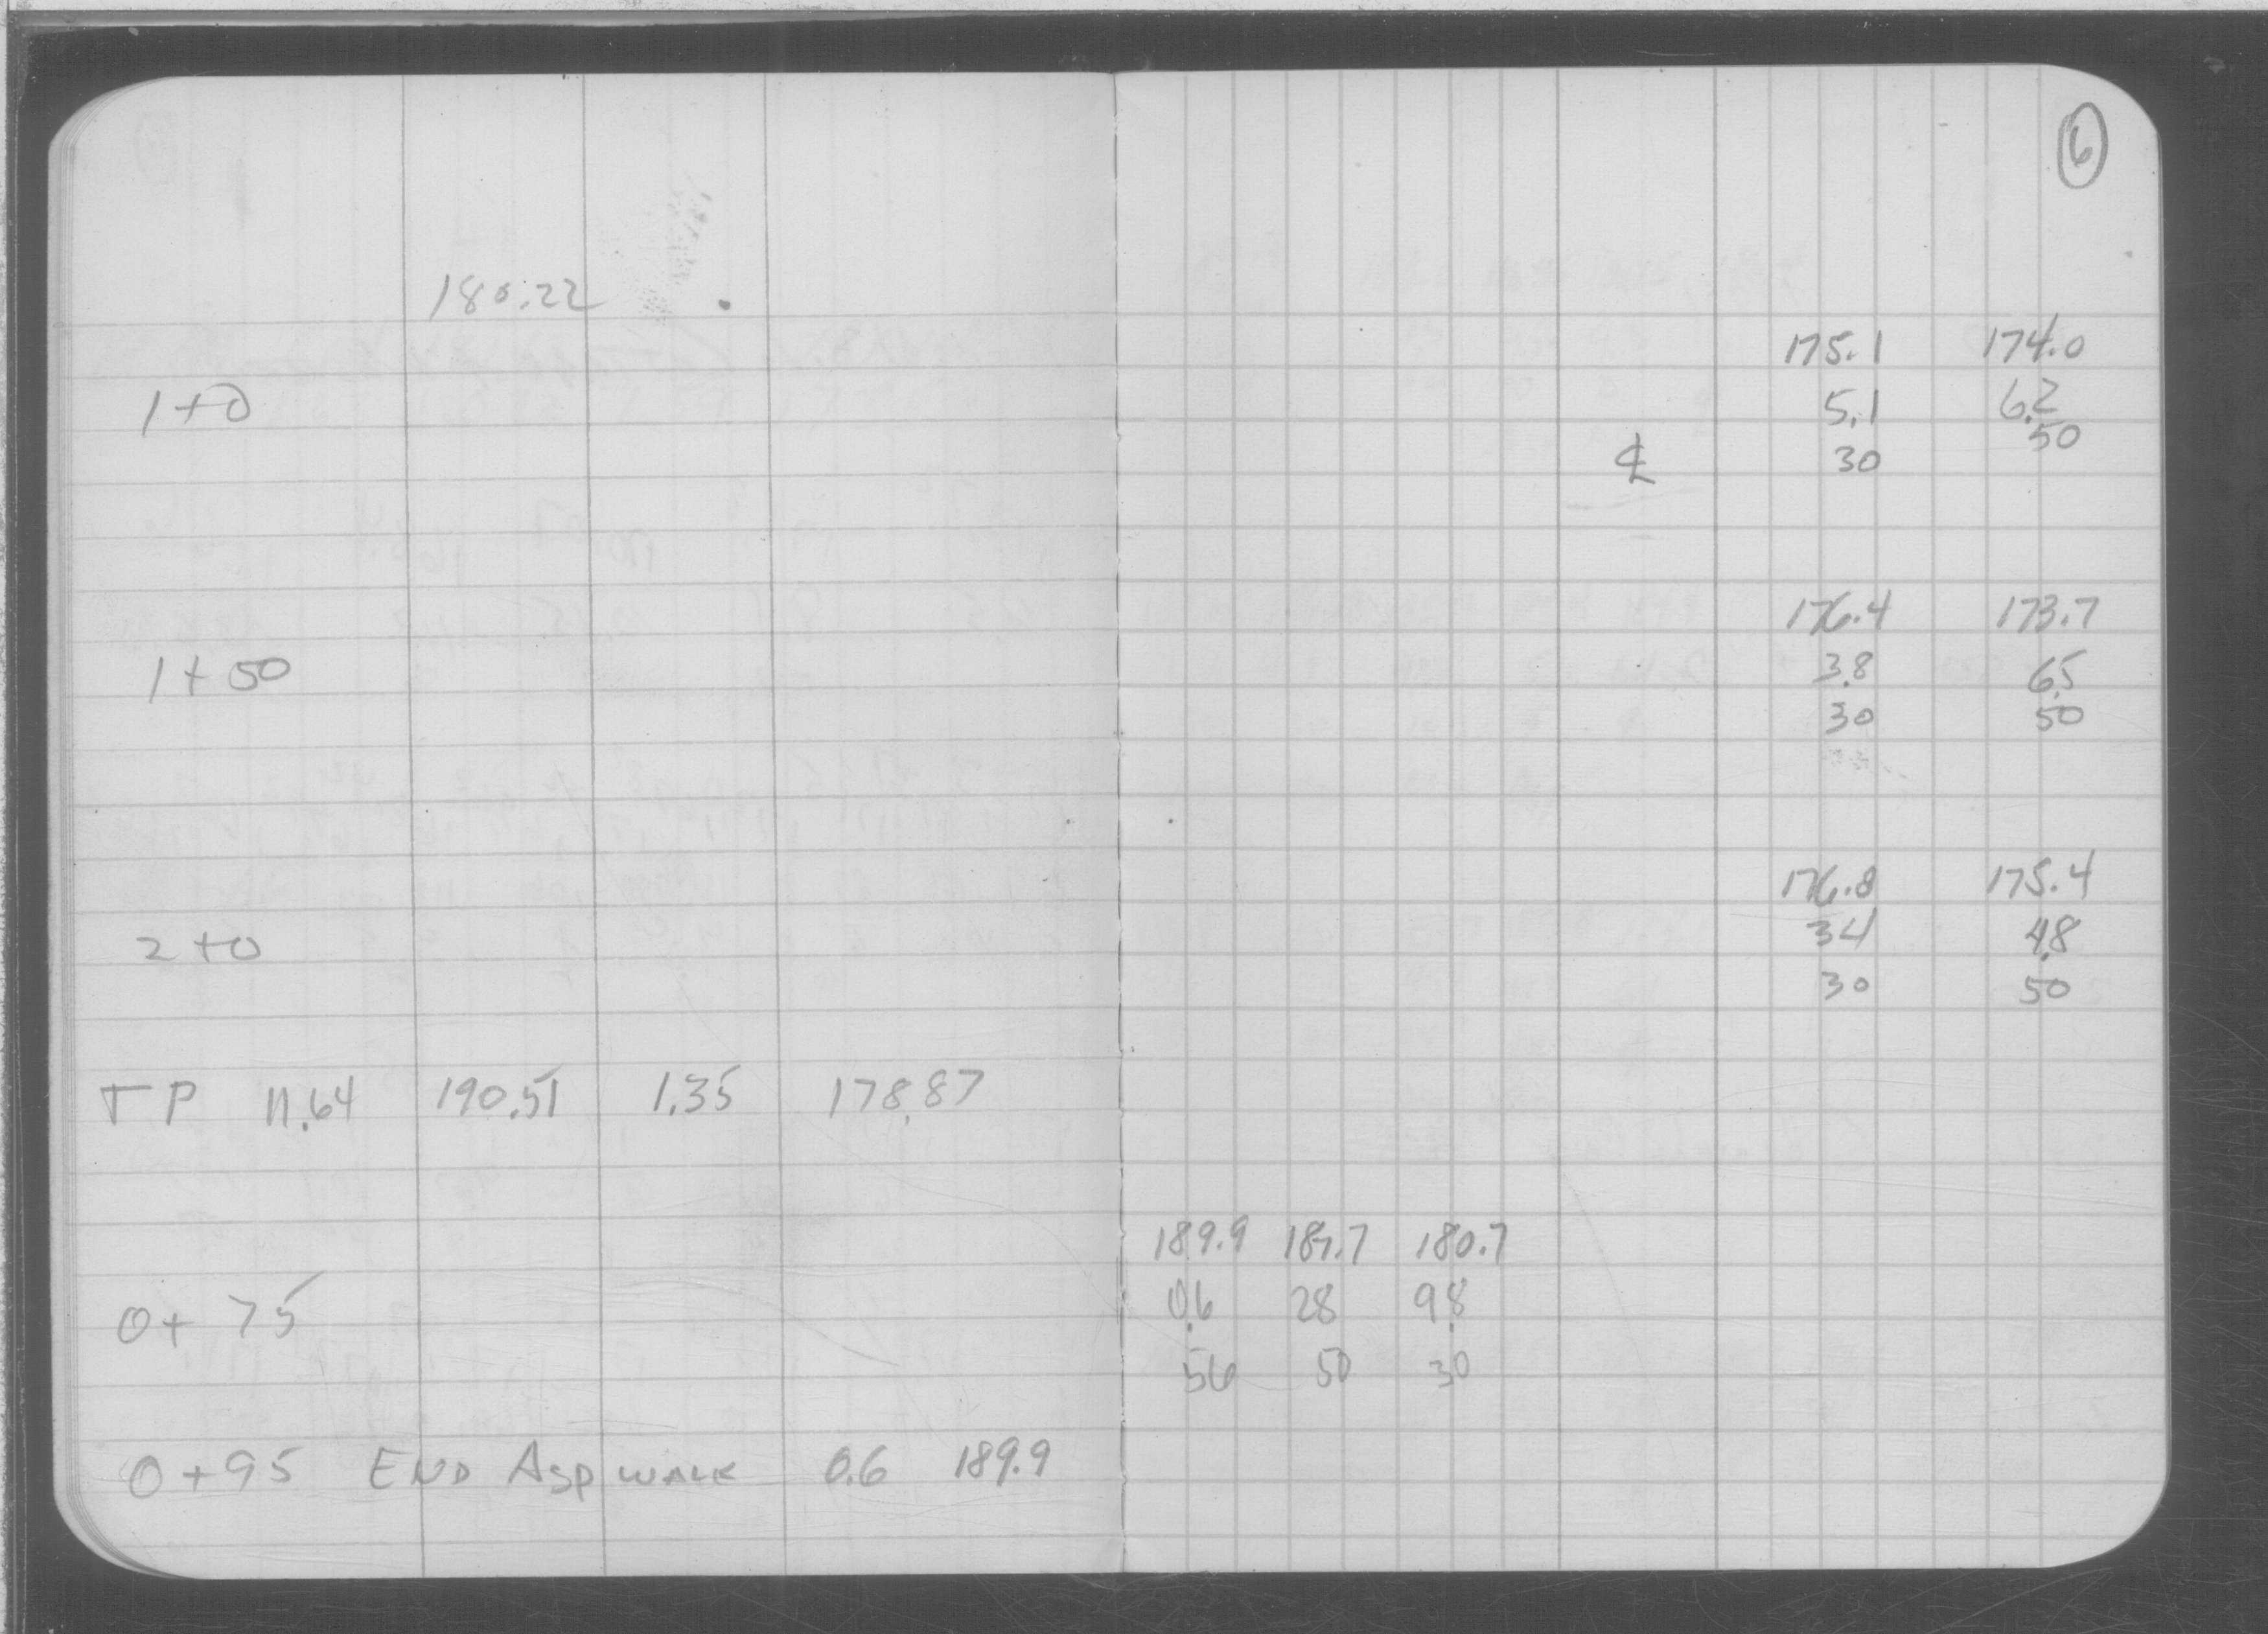 6
180.22
175.1 174.0
1+0 5.1 6.2
℄ 30 50
176.4 173.7
1+50 3.8 6.5
30 50
176.8 175.4
2+0 3.4 4.8
30 50
TP 11.64 190.51 1.35 178.87
189.9 187.7 180.7
0+75 0.6 2.8 9.8
56 50 30
0+95 END ASP WALK 0.6 189.9